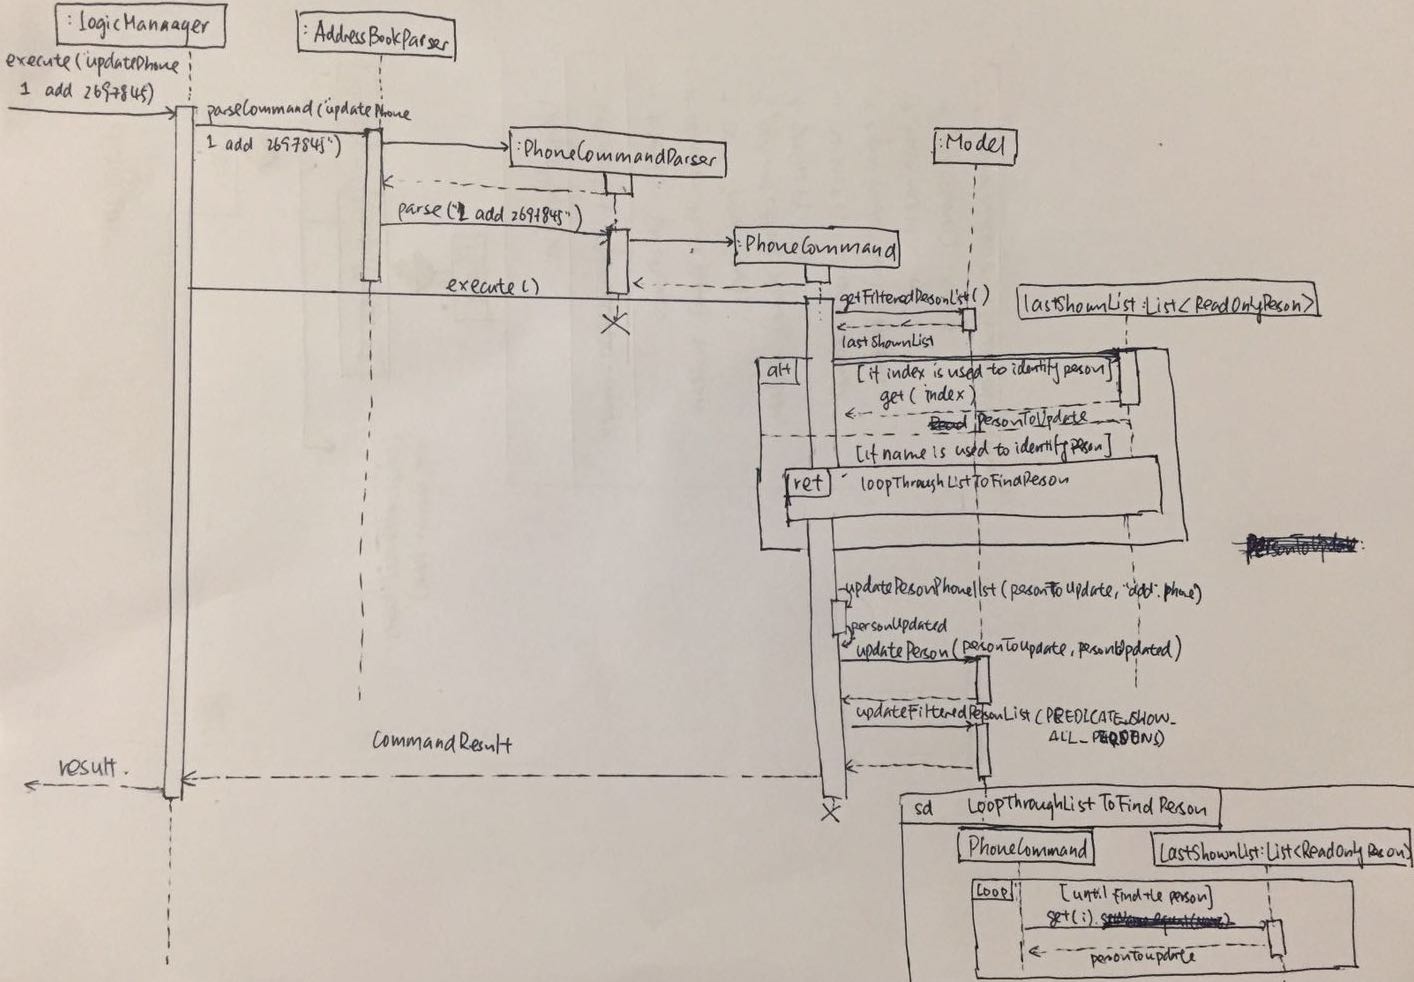 :LogicMannager
:AddressBookParser
execute("updatePhone
1 add 2697845)
parseCommand("updatePhone
1 add 2697845")
:PhoneCommandParser
:Model
parse("1 add 2697845")
:PhoneCommand
execute()
getFilteredPersonList()
lastShownList:List<ReadOnlyPerson>
lastShownList
alt
[if index is used to identify person]
get(index)
personToUpdate
[if name is used to identify person]
ref
loopThroughListToFindPerson
updatePersonPhonelist(personToUpdate, "add", phone)
personUpdated
updatePerson(personToUpdate, personUpdated)
updateFilteredPersonList(PREDICATE_SHOW_
ALL_PERSONS)
CommandResult
result.
sd LoopThroughListToFindPerson
PhoneCommand
LastShownList:List<ReadOnlyPerson>
Loop
[until find the person]
get(i).
persontoupdate